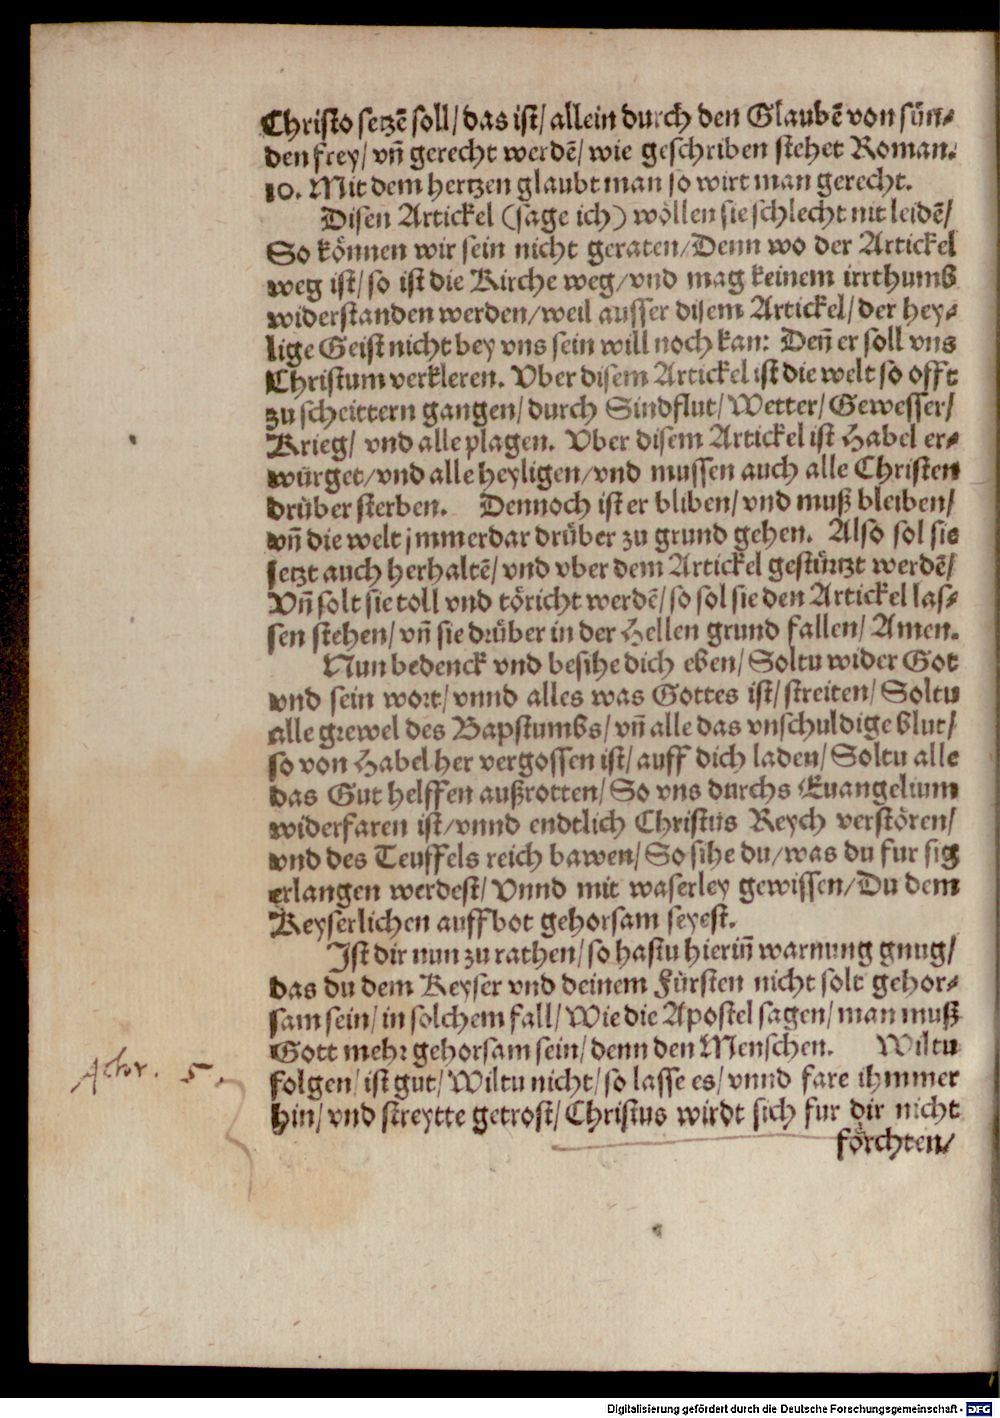 Christo setzē soll/ das ist/ allein durch den Glaubē von sün-
den frey/ vn̄ gerecht werdē/ wie geschriben stehet Roman.
10. Mit dem hertzen glaubt man so wirt man gerecht.
Disen Artickel (sage ich) wöllen sie schlecht nit leidē/
So können wir sein nicht geraten/ Denn wo der Artickel
weg ist/ so ist die Kirche weg/ vnd mag keinem irrthumb
widerstanden werden/ weil ausser disem Artickel/ der hey-
lige Geist nicht bey vns sein will noch kan: Den̄ er soll vns
Christum verkleren. Vber disem Artickel ist die welt so offt
zu scheittern gangen/ durch Sindflut/ Wetter/ Gewesser/
Krieg/ vnd alle plagen. Vber disem Artickel ist Habel er-
würget/ vnd alle heyligen/ vnd mussen auch alle Christen
drüber sterben. Dennoch ist er bliben/ vnd muß bleiben/
vn̄ die welt jmmerdar drüber zu grund gehen. Also sol sie
jetzt auch herhaltē/ vnd vber dem Artickel gestürtzt werdē/
Vn̄ solt sie toll vnd töricht werdē/ so sol sie den Artickel las-
sen stehen/ vn̄ sie drüber in der Hellen grund fallen/ Amen.
Nun bedenck vnd besihe dich eben/ Soltu wider Got
vnd sein wort/ vnnd alles was Gottes ist/ streiten/ Soltu
alle grewel des Bapstumbs/ vn̄ alle das vnschuldige blut/
so von Habel her vergossen ist/ auff dich laden/ Soltu alle
das Gut helffen außrotten/ So vns durchs Euangelium
widerfaren ist/ vnnd endtlich Christus Reych verstören/
vnd des Teuffels reich bawen/ So sihe du/ was du fur sig
erlangen werdest/ Vnnd mit waserley gewissen/ Du dem
Keyserlichen auffbot gehorsam seyest.
Ist dir nun zu rathen/ so hastu hierin̄ warnung gnug/
das du dem Keyser vnd deinem Fürsten nicht solt gehor-
sam sein/ in solchem fall/ Wie die Apostel sagen/ man muß
Gott mehr gehorsam sein/ denn den Menschen. Wiltu
Actor. 5.
folgen/ ist gut/ Wiltu nicht/ so lasse es/ vnnd fare ihmmer
hin/ vnd streytte getrost/ Christus wirdt sich fur dir nicht
förchten/
Digitalisierung gefördert durch die Deutsche Forschungsgemeinschaft - DFG